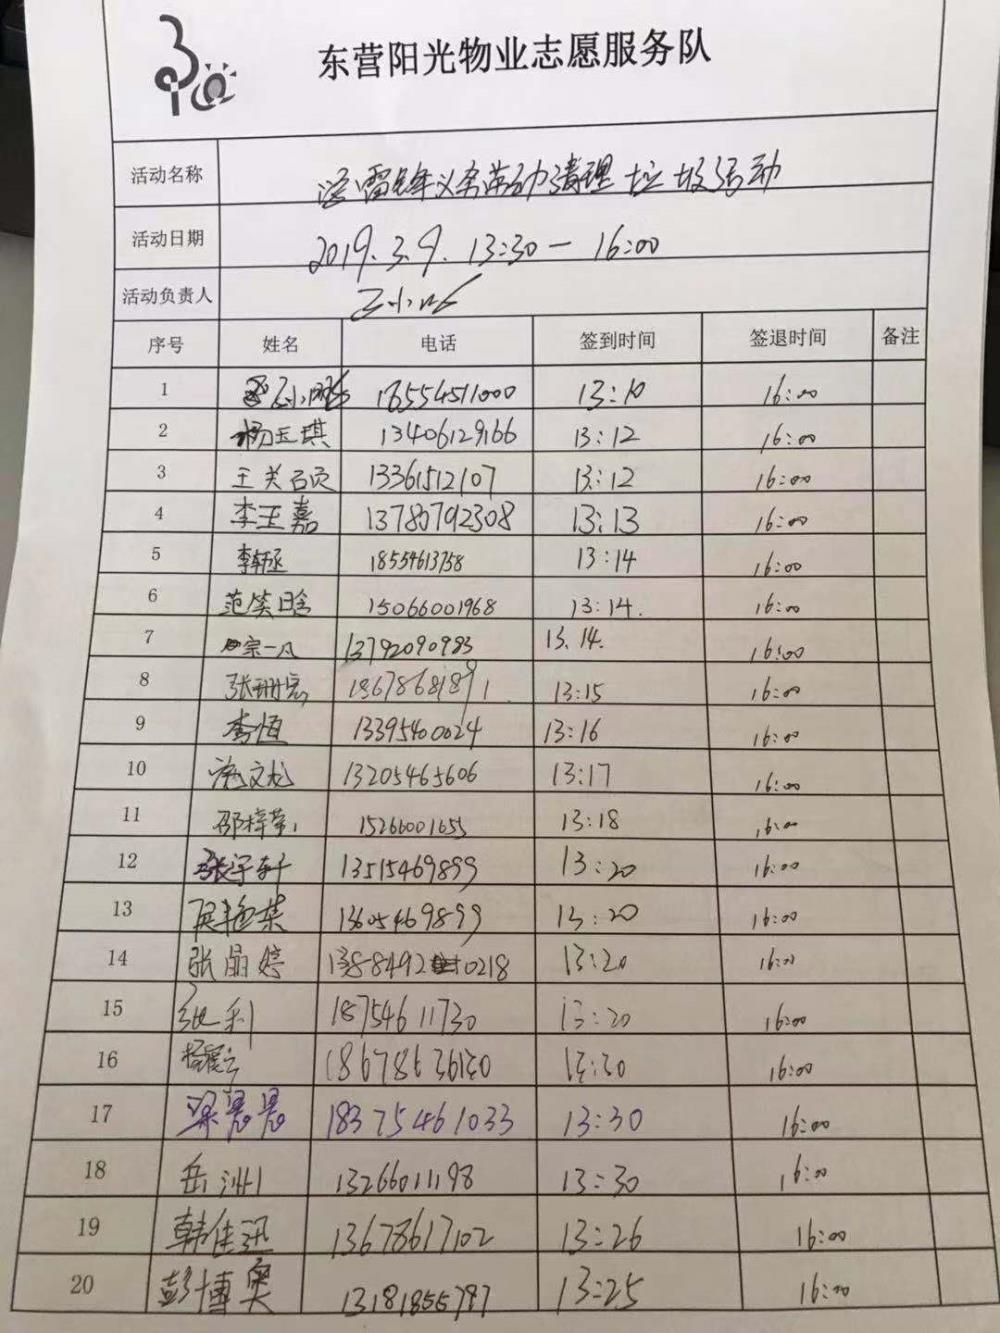 东营阳光物业志愿服务队
活动名称 学雷锋义务劳动清理垃圾活动
活动日期 2019.3.9. 13:30—16:00
活动负责人
序号 姓名 电话 签到时间 签退时间 备注
1 18554511000 13:10 16:00
2 杨玉琪 13406129166 13:12 16:00
3 王关召页 13361512107 13:12 16:00
4 李玉嘉 13780792308 13:13 16:00
5 李轩丞 18554613758 13:14 16:00
6 范笑晗 15066001968 13:14. 16:00
7 宗一凡 13792090983 13.14. 16:00
8 13:15 16:00
9 李恒 13395400024 13:16 16:00
10 文龙 13205465606 13:17 16:00
11 15266001655 13:18 16:00
12 张宇轩 13515469899 13:20 16:00
13 13605469899 13:20 16:00
14 张丽婷 13:20 16:00
15 张利 18754611730 13:20 16:00
16 18678636130 13:30 16:00
17 梁晨晨 18375461033 13:30 16:00
18 岳洲 13266011198 13:30 16:00
19 韩佳迅 13678617102 13:26 16:00
20 彭博奥 13181855787 13:25 16:00